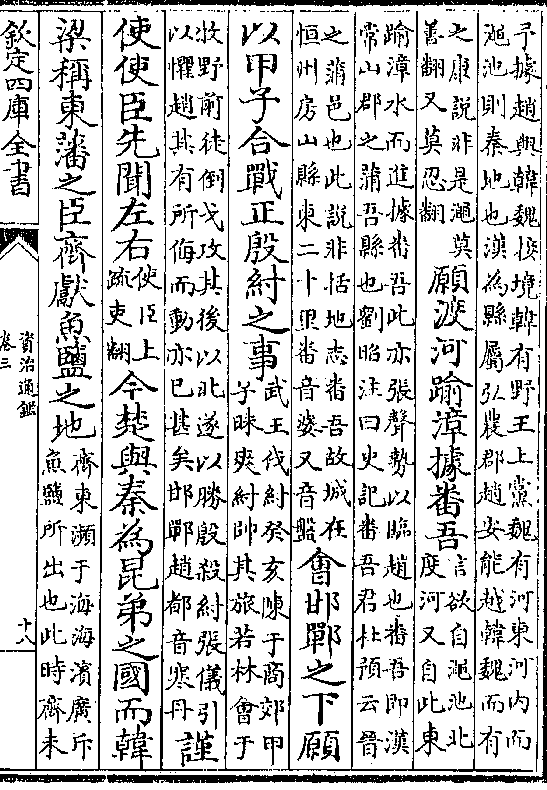 予據趙與韓魏接境韓有野王上黨魏有河東河內而
澠池則秦地也漢為縣屬弘農郡趙安能越韓魏而有
之康說非是澠莫
善翻又莫忍翻
願渡河踰漳據番吾
言欲自澠池北
度河又自此東
踰漳水而進據番吾此亦張聲勢以臨趙也番吾即漢
常山郡之蒲吾縣也劉昭注曰史記番吾君杜預云晉
之蒲邑也此說非括地志番吾故城在
恒州房山縣東二十里番音婆又音盤
會邯鄲之下願
以甲子合戰正殷紂之事
武王伐紂癸亥陳于商郊甲
子昧爽紂帥其旅若林會于
牧野前徒倒戈攻其後以北遂以勝殷殺紂張儀引
以懼趙其有所侮而動亦已甚矣邯鄲趙都音寒丹
謹
使使臣先聞左右
使臣上
疏吏翻
今楚與秦為昆弟之國而韓
梁稱東藩之臣齊獻魚鹽之地
齊東瀕于海海濱廣斥
魚鹽所出也此時齊未
欽定四庫全書
資治通鑑
卷三
十八